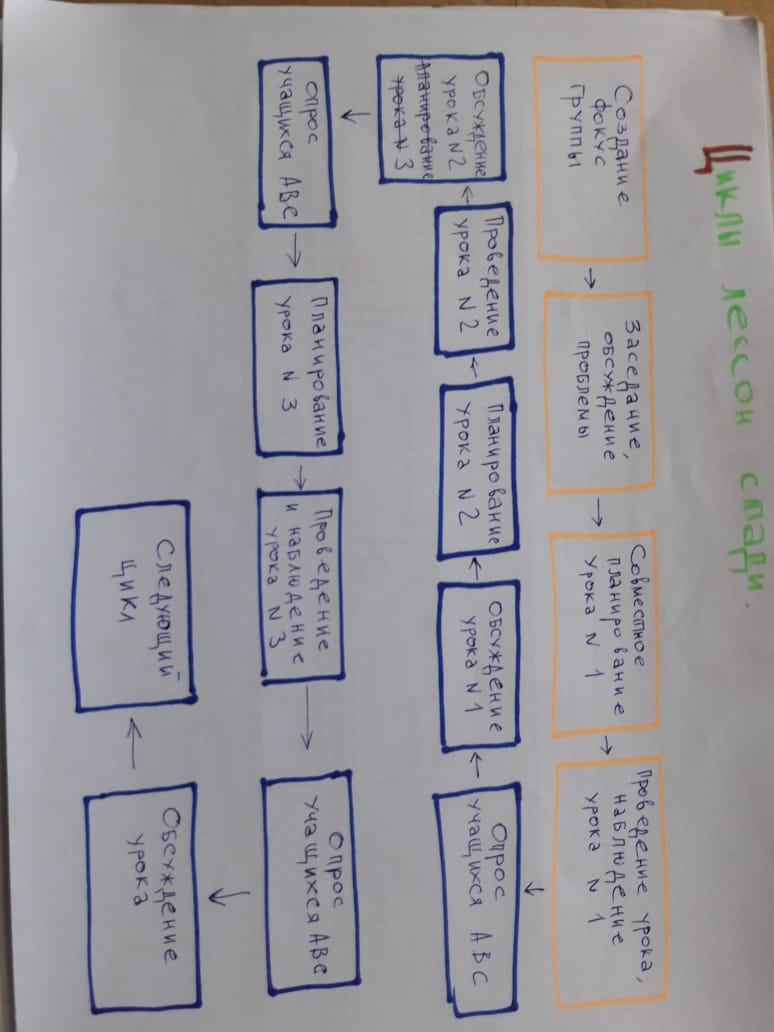 Циклы лессон стади.
Создание
фокус
группы
Заседание,
обсуждение
проблемы
Совместное
планирование
урока N 1
Проведение урока,
наблюдение
урока N 1
Опрос
учащихся ABC
Обсуждение
урока N1
Планирование
урока N2
Проведение
урока N2
Обсуждение
урока N2
планирование
урока N 3
Опрос
учащихся ABC
Планирование
урока N 3
Проведение
и наблюдение
урока N 3
Опрос
учащихся ABC
Обсуждение
урока
Следующий
цикл